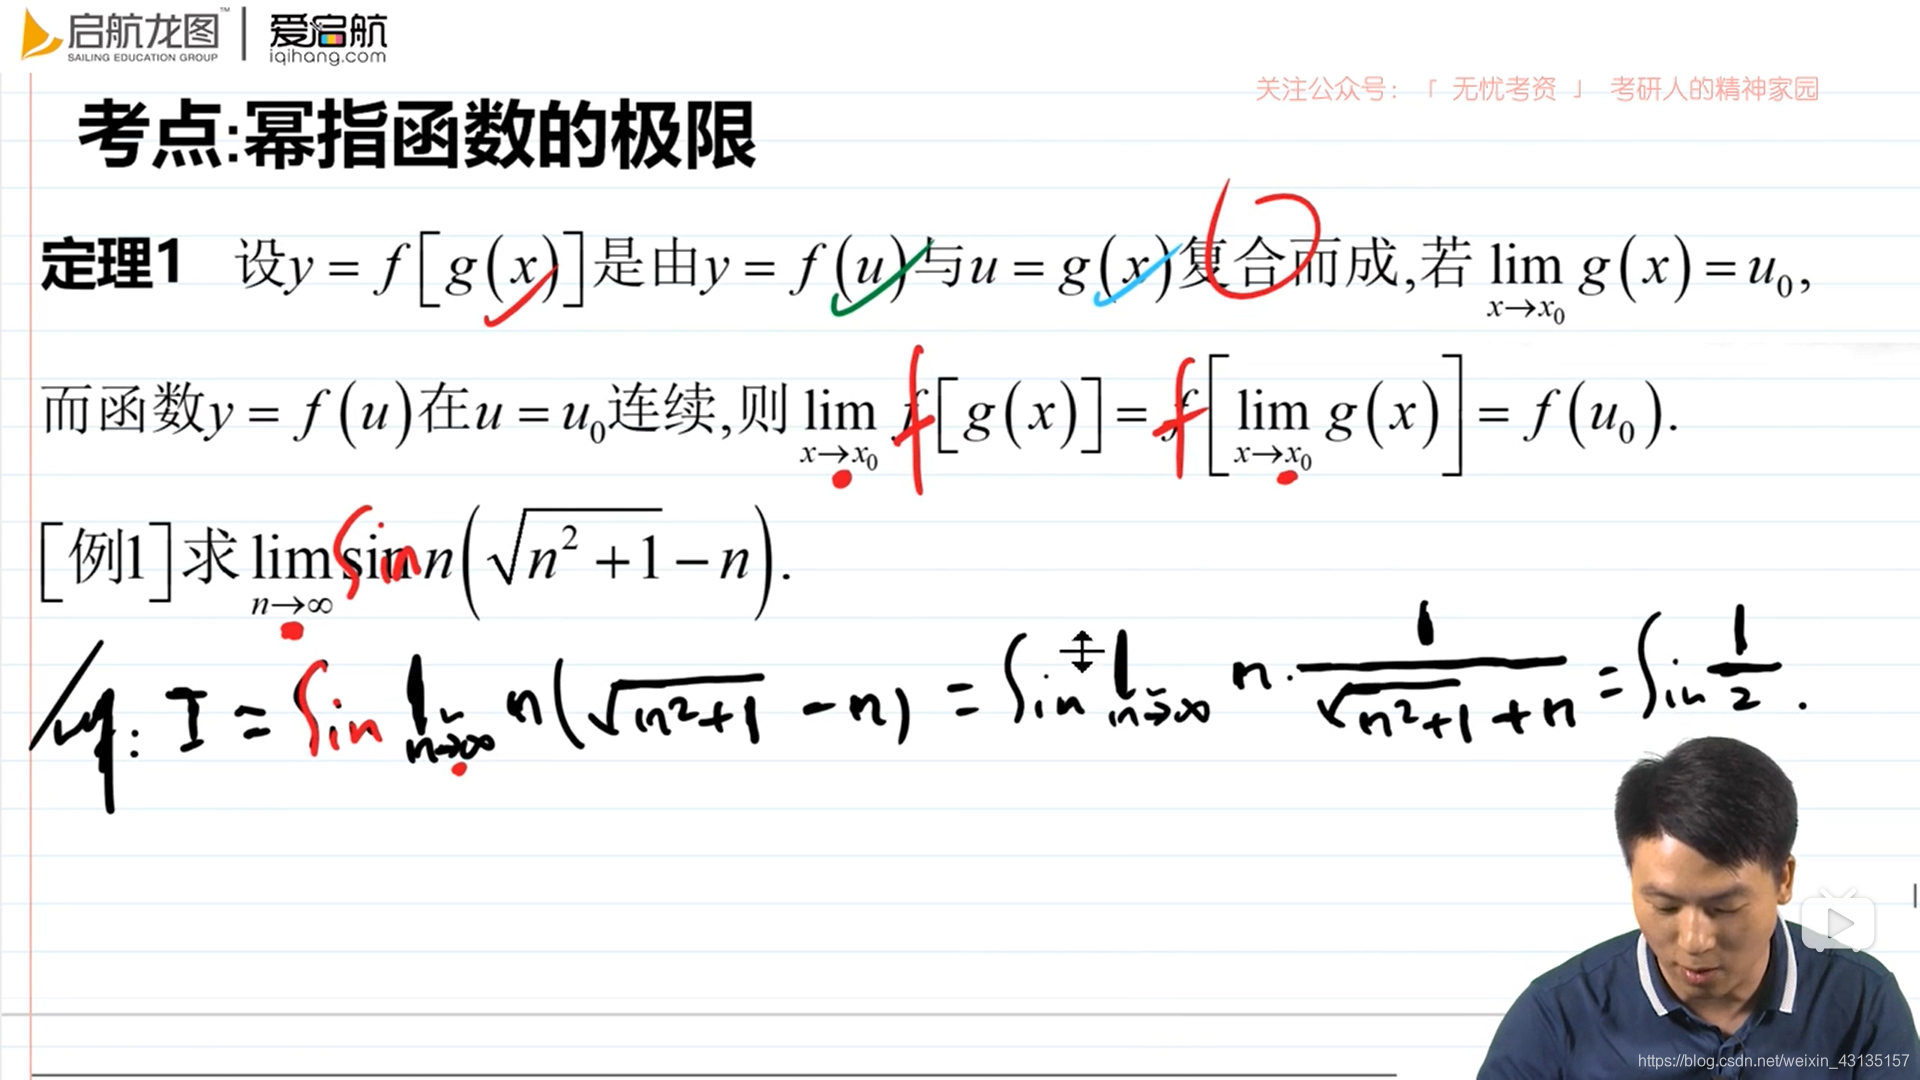 启航龙图™ | 爱启航
SAILING EDUCATION GROUP iqihang.com
关注公众号：「 无忧考资 」 考研人的精神家园
考点:幂指函数的极限
定理1 设y = f[g(x)]是由y = f(u)与u = g(x)复合而成,若 lim_{x→x₀} g(x) = u₀,
而函数y = f(u)在u = u₀连续,则 lim_{x→x₀} f[g(x)] = f[lim_{x→x₀} g(x)] = f(u₀).
[例1]求 lim_{n→∞} sin n(√(n²+1) − n).
I = sin lim_{n→∞} n(√(n²+1) − n) = sin lim_{n→∞} n · 1/(√(n²+1) + n) = sin 1/2 .
https://blog.csdn.net/weixin_43135157